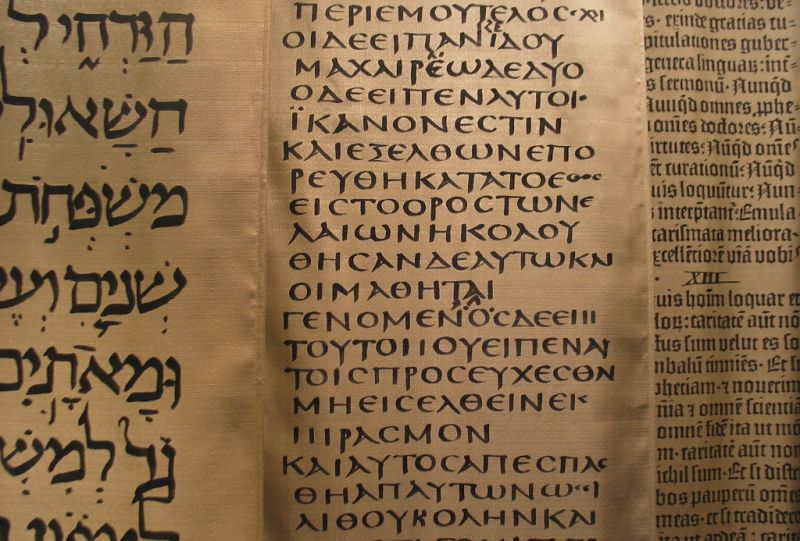 הַזַּרְחִי ל
הַשָּׁאוּלִ
מִשְׁפְּחֹת
שְׁנַיִם וְעֶ
וּמָאתָיִם
גָד לְמִשׁ
ΠΕΡΙΕΜΟΥΤΕΛΟϹΕΧΙ
ΟΙΔΕΕΙΠΑΝΚΕΙΔΟΥ
ΜΑΧΑΙΡΕΩΔΕΔΥΟ
ΟΔΕΕΙΠΕΝΑΥΤΟΙ·
ΪΚΑΝΟΝΕϹΤΙΝ
ΚΑΙΕΞΕΛΘΩΝΕΠΟ
ΡΕΥΘΗΚΑΤΑΤΟΕΘΟϹ
ΕΙϹΤΟΟΡΟϹΤΩΝΕ
ΛΑΙΩΝΗΚΟΛΟΥ
ΘΗϹΑΝΔΕΑΥΤΩΚΑΙ
ΟΙΜΑΘΗΤΑΙ
ΓΕΝΟΜΕΝΟϹΔΕΕΠΙ
ΤΟΥΤΟΠΟΥΕΙΠΕΝΑΥ
ΤΟΙϹΠΡΟϹΕΥΧΕϹΘΑΙ
ΜΗΕΙϹΕΛΘΕΙΝΕΙϹ
ΠΙΡΑϹΜΟΝ
ΚΑΙΑΥΤΟϹΑΠΕϹΠΑϹ
ΘΗΑΠΑΥΤΩΝΩϹΙ
ΛΙΘΟΥΚΟΛΗΝΚΑΙ
s· exinde gratias cu-
pitulationes guber-
genera linguaꝝ: int̄-
s sermonū· Nunqͥd
Nunqͥd omnes ꝓphe-
omēs doctores: Nū-
irtutes: Nūqͥd omēs
ēt curationū: Nūqͥd
uis loquūtur: Nun
interp̄tant: Emula
carismata meliora·
excellētiorē viā vobis
XIII
uis hoīm loquar et
loꝝ: caritatē aūt nō
tus sum velut es so
mbalū tinniēs· Et si
phetiam ⁊ noverim
mīa ⁊ omnē scientiā
omnē fidē ita ut mō
m· caritatē aūt non
nichil sum· Et si distri
bos pauperū omēs
meas· et si tradidero